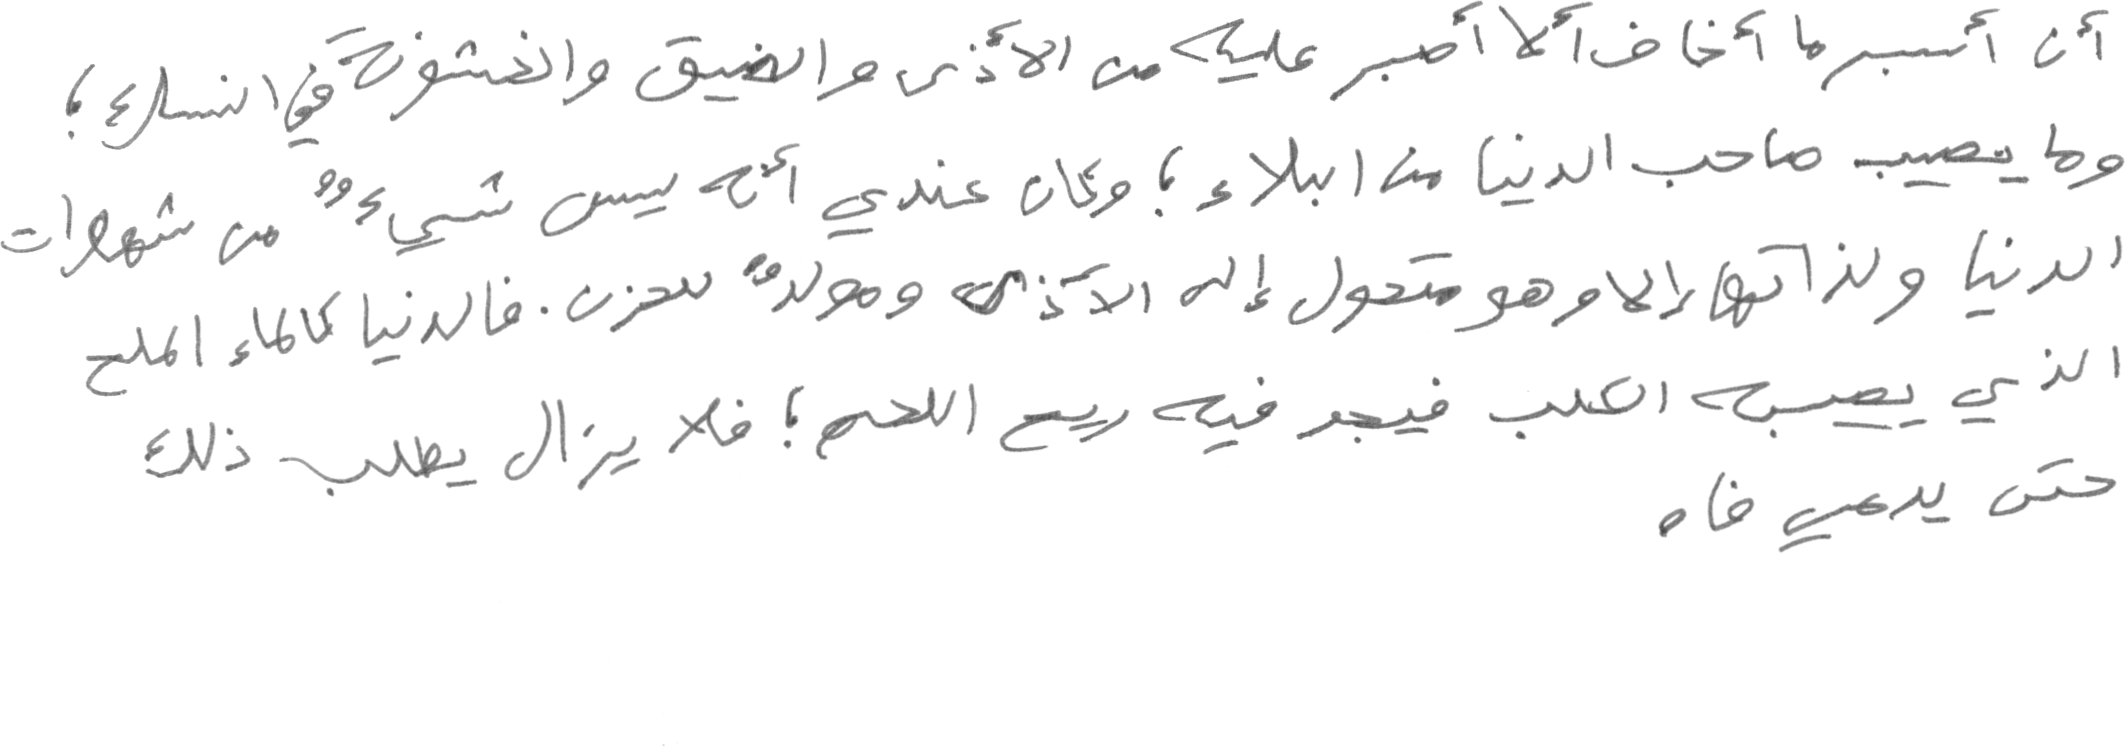 أن أسبر ما أخاف ألا أصبر عليه من الأذى والضيق والخشونة في النسك؛
وما يصيب صاحب الدنيا من البلاء؛ وكان عندي أنه ليس شيءٌ من شهوات
الدنيا ولذاتها إلا وهو متحول إلى الأذى ومولدٌ للحزن. فالدنيا كالماء الملح
الذي يصيبه الكلب فيجد فيه ريح اللحم؛ فلا يزال يطلب ذلك
حتى يدمي فاه